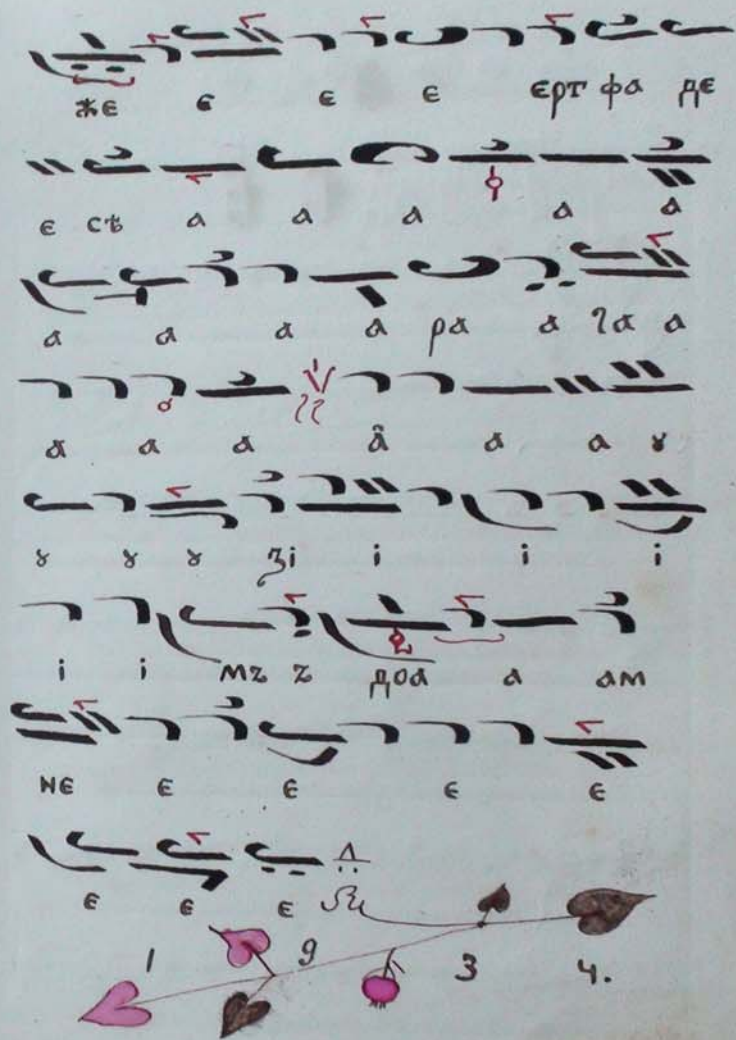 жє є є є єрт фа дє
є съ а а а а а
а а а а ра а га а
а а а а а а ꙋ
ꙋ ꙋ ꙋ зі і і і
і і мъ ъ доа а ам
нє є є є є
є є є
1 9 3 4.